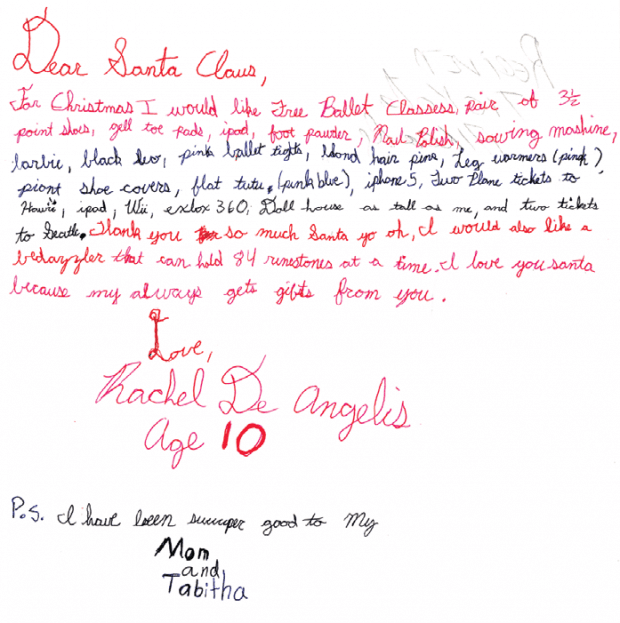 Dear Santa Claus,
For Christmas I would like Free Ballet Classess, pair of 3½
point shoes, gell toe pads, ipod, foot pawder, Nail Polish, sowing mashine,
barbie, black leo, pink ballet tights, blond hair pins, Leg warmers (pink)
piont shoe covers, flat tutu, (punk blue), iphone 5, Two Plane tickets to
Hawii, ipad, Wii, exbox 360, Doll house as tall as me, and two tickets
to Seattle. Thank you so much Santa yo oh, I would also like a
bedazzler that can hold 84 rinestones at a time. I love you santa
because my always gets gifts from you.
Love,
Rachel De Angelis
Age 10
P.S. I have been suuuper good to My
Mom
and
Tabitha